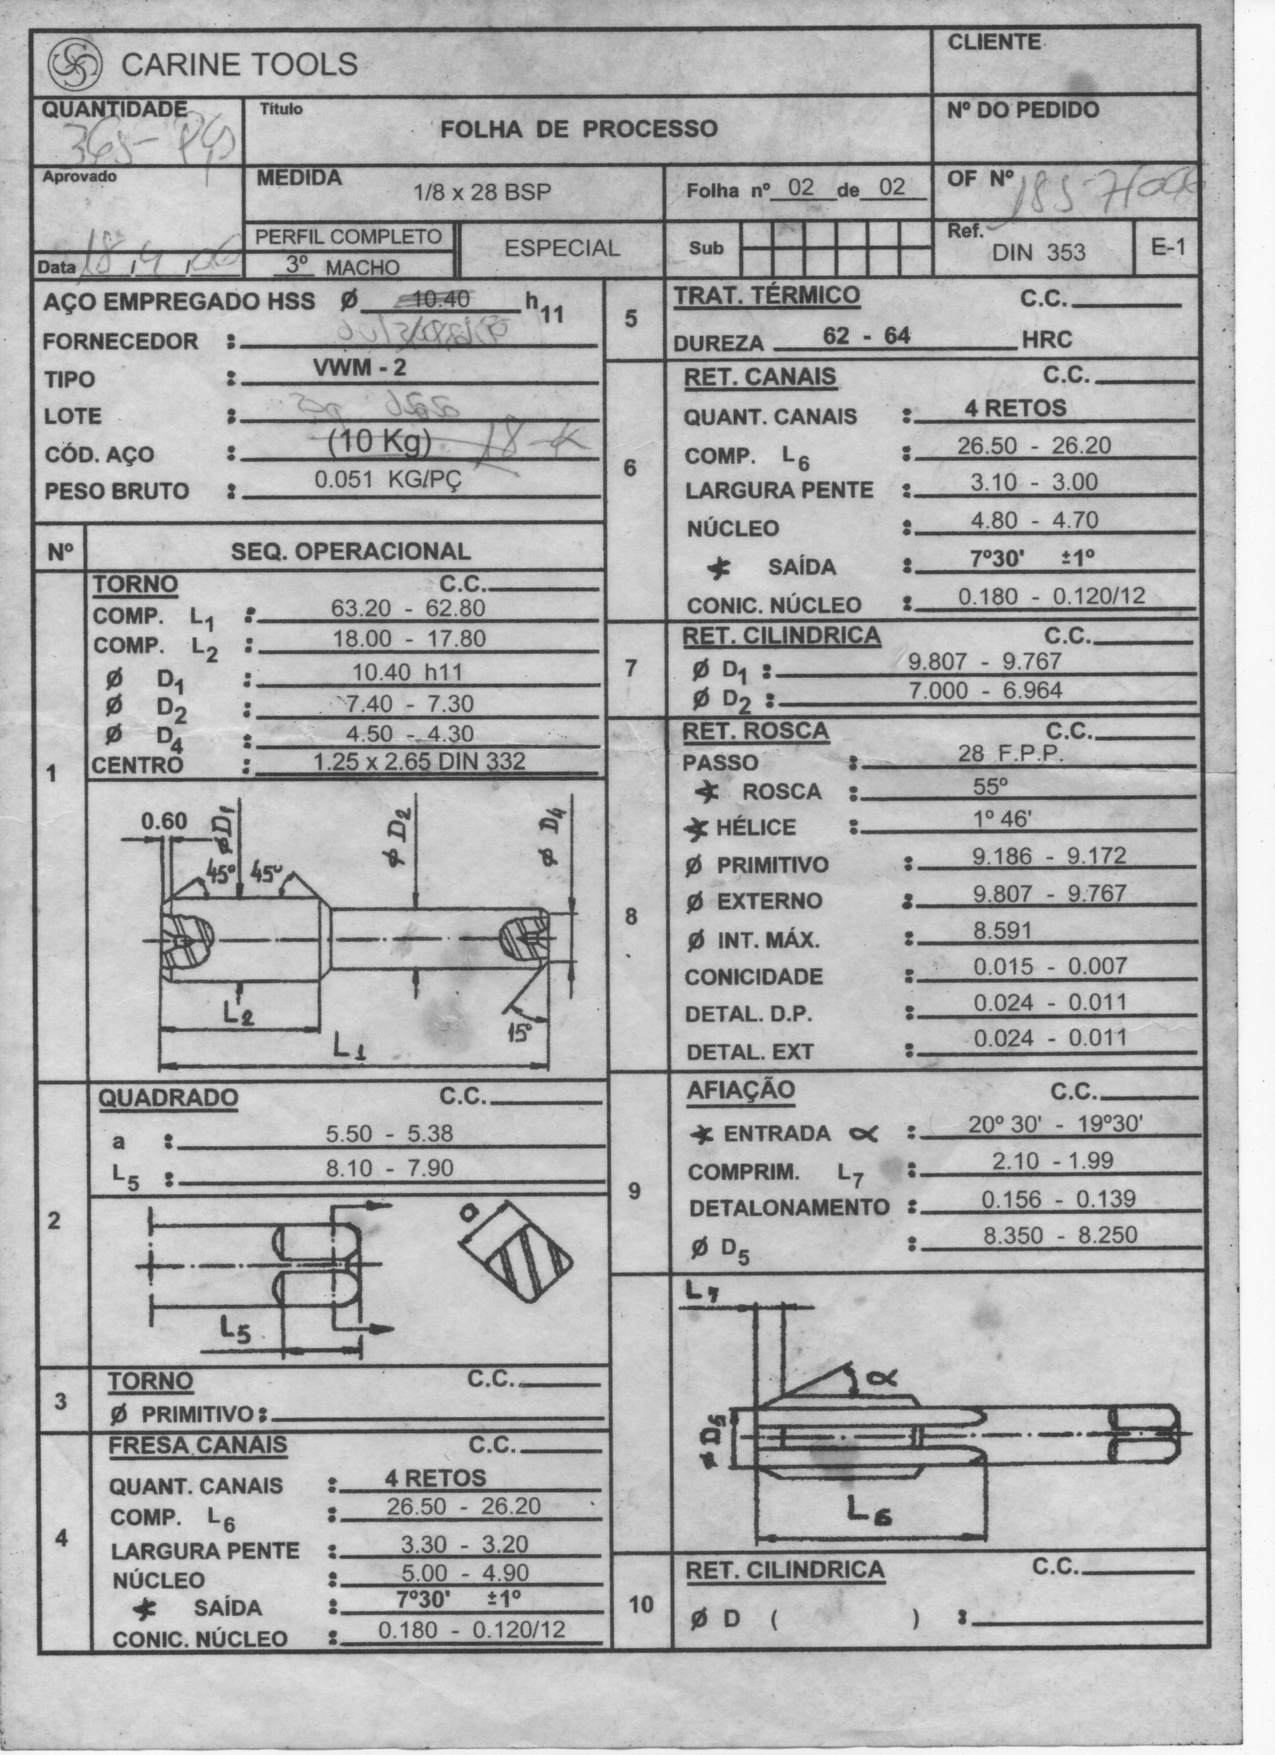 CARINE TOOLS
CLIENTE
QUANTIDADE
365-PÇS
Título
FOLHA DE PROCESSO
Nº DO PEDIDO
Aprovado
MEDIDA
1/8 x 28 BSP
Folha nº 02 de 02
OF Nº
PERFIL COMPLETO
ESPECIAL
Sub
Ref.
DIN 353
E-1
Data 18,4,06
3º MACHO
AÇO EMPREGADO HSS Ø 10.40 h11
FORNECEDOR :
TIPO : VWM - 2
LOTE :
CÓD. AÇO : (10 Kg) 18-K
PESO BRUTO : 0.051 KG/PÇ
Nº SEQ. OPERACIONAL
1
TORNO C.C.
COMP. L1 : 63.20 - 62.80
COMP. L2 : 18.00 - 17.80
Ø D1 : 10.40 h11
Ø D2 : 7.40 - 7.30
Ø D4 : 4.50 - 4.30
CENTRO : 1.25 x 2.65 DIN 332
0.60
Ø D1
Ø D2
Ø D4
45º
45º
L2
15º
L1
2
QUADRADO C.C.
a : 5.50 - 5.38
L5 : 8.10 - 7.90
a
L5
3
TORNO C.C.
Ø PRIMITIVO :
4
FRESA CANAIS C.C.
QUANT. CANAIS : 4 RETOS
COMP. L6 : 26.50 - 26.20
LARGURA PENTE : 3.30 - 3.20
NÚCLEO : 5.00 - 4.90
SAÍDA : 7º30' ±1º
CONIC. NÚCLEO : 0.180 - 0.120/12
5
TRAT. TÉRMICO C.C.
DUREZA 62 - 64 HRC
6
RET. CANAIS C.C.
QUANT. CANAIS : 4 RETOS
COMP. L6 : 26.50 - 26.20
LARGURA PENTE : 3.10 - 3.00
NÚCLEO : 4.80 - 4.70
SAÍDA : 7º30' ±1º
CONIC. NÚCLEO : 0.180 - 0.120/12
7
RET. CILINDRICA C.C.
Ø D1 : 9.807 - 9.767
Ø D2 : 7.000 - 6.964
8
RET. ROSCA C.C.
PASSO : 28 F.P.P.
ROSCA : 55º
HÉLICE : 1º 46'
Ø PRIMITIVO : 9.186 - 9.172
Ø EXTERNO : 9.807 - 9.767
Ø INT. MÁX. : 8.591
CONICIDADE : 0.015 - 0.007
DETAL. D.P. : 0.024 - 0.011
DETAL. EXT : 0.024 - 0.011
9
AFIAÇÃO C.C.
ENTRADA α : 20º 30' - 19º30'
COMPRIM. L7 : 2.10 - 1.99
DETALONAMENTO : 0.156 - 0.139
Ø D5 : 8.350 - 8.250
L7
α
Ø D5
L6
10
RET. CILINDRICA C.C.
Ø D ( ) :